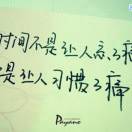 时间不是让人忘了痛
是让人习惯了痛
Payene